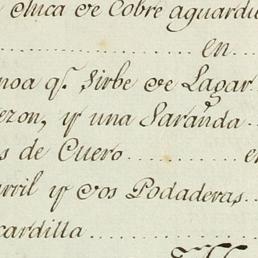 chica de Cobre aguardi
en
noa q.e Sirbe de Lagar
ezon, y una Saranda
s de Cuero
rril y dos Podaderas
cardilla